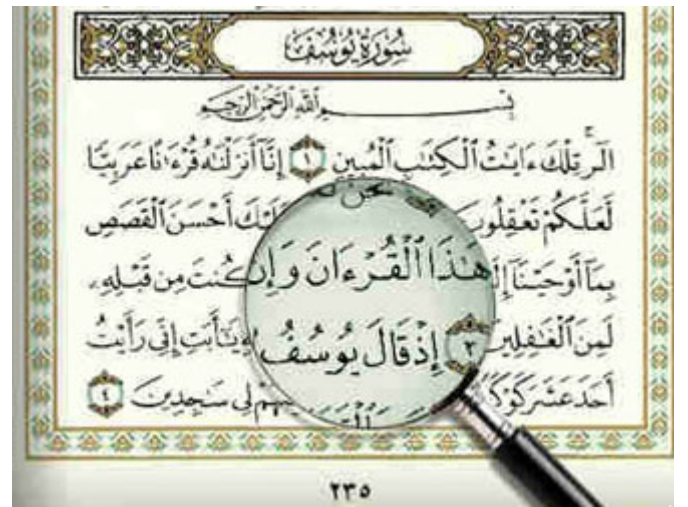 سُورَةُ يُوسُفَ
بِسْمِ ٱللَّهِ ٱلرَّحْمَٰنِ ٱلرَّحِيمِ
الٓر تِلْكَ ءَايَٰتُ ٱلْكِتَٰبِ ٱلْمُبِينِ ١ إِنَّآ أَنزَلْنَٰهُ قُرْءَٰنًا عَرَبِيًّا
لَّعَلَّكُمْ تَعْقِلُونَ نَحْنُ عَلَيْكَ أَحْسَنَ ٱلْقَصَصِ
بِمَآ أَوْحَيْنَآ هَٰذَا ٱلْقُرْءَانَ وَإِن كُنتَ مِن قَبْلِهِۦ
لَمِنَ ٱلْغَٰفِلِينَ ٣ إِذْ قَالَ يُوسُفُ يَٰٓأَبَتِ إِنِّي رَأَيْتُ
أَحَدَ عَشَرَ كَوْكَبًا لِي سَٰجِدِينَ ٤
٢٣٥